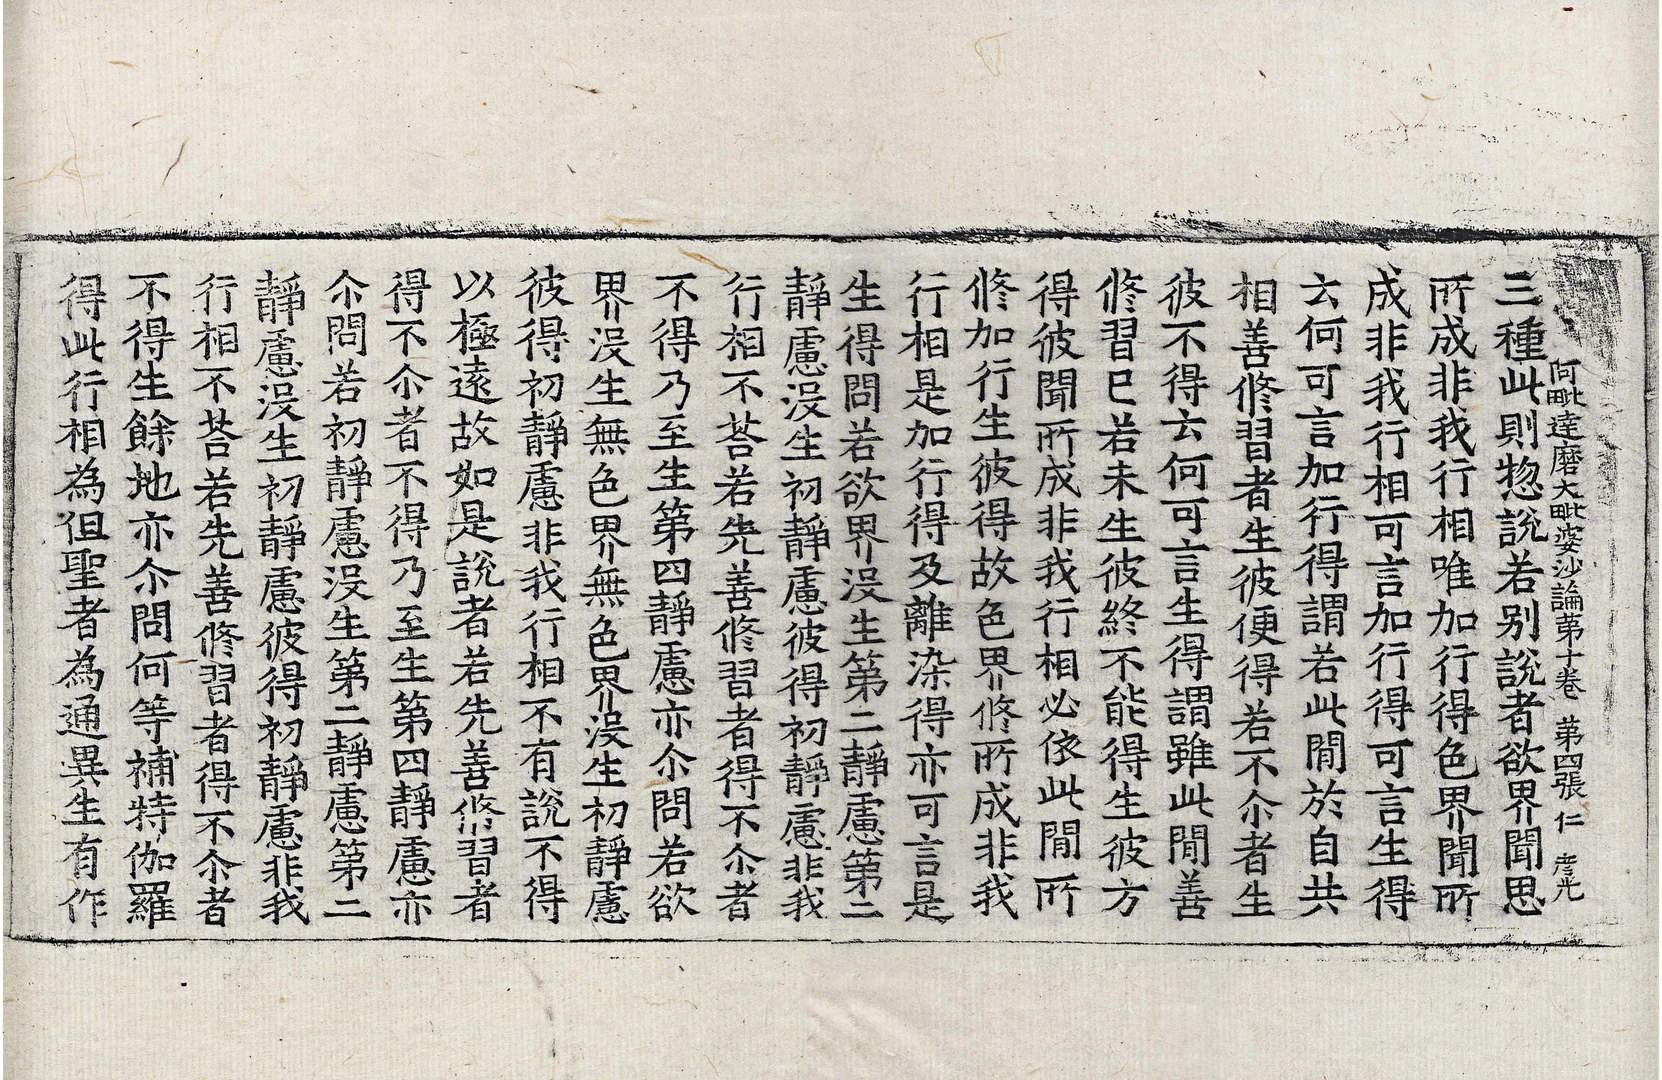 阿毗達磨大毗婆沙論第十卷 第四張 仁 彦光
三種此則惣說若別說者欲界聞思
所成非我行相唯加行得色界聞所
成非我行相可言加行得可言生得
云何可言加行得謂若此間於自共
相善修習者生彼便得若不尒者生
彼不得云何可言生得謂雖此間善
修習已若未生彼終不能得生彼方
得彼聞所成非我行相必依此間所
修加行生彼得故色界修所成非我
行相是加行得及離染得亦可言是
生得問若欲界沒生第二靜慮第二
靜慮沒生初靜慮彼得初靜慮非我
行相不荅若先善修習者得不尒者
不得乃至生第四靜慮亦尒問若欲
界沒生無色界無色界沒生初靜慮
彼得初靜慮非我行相不有說不得
以極遠故如是說者若先善修習者
得不尒者不得乃至生第四靜慮亦
尒問若初靜慮沒生第二靜慮第二
靜慮沒生初靜慮彼得初靜慮非我
行相不荅若先善修習者得不尒者
不得生餘地亦尒問何等補特伽羅
得此行相為但聖者為通異生有作